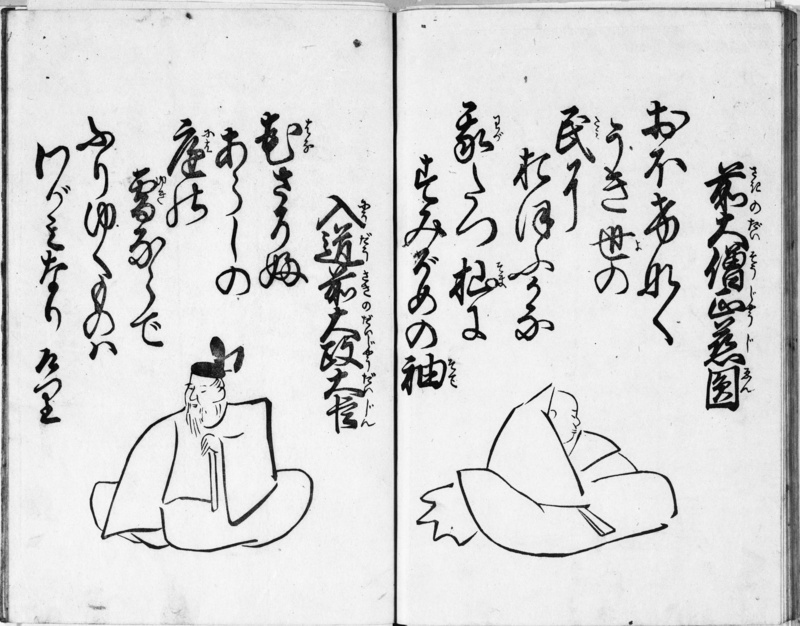 前大僧正慈圓
おほけなく
うき世の
民に
おほふかな
我たつ杣に
すみぞめの袖
入道前大政大臣
花さそふ
あらしの
庭の
雪ならで
ふりゆくものハ
わがミなりけり